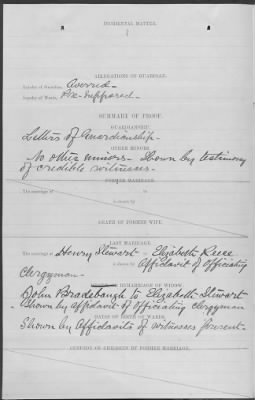 INCIDENTAL MATTER.
ALLEGATIONS OF GUARDIAN.
Loyalty of Guardian, Averred-
Loyalty of Wards,
SUMMARY OF PROOF.
GUARDIANSHIP.
Letters of Guardianship-
OTHER MINORS.
No other minors- Shown by testimony
of credible witnesses-
FORMER MARRIAGE.
The marriage of to
is shown by
DEATH OF FORMER WIFE.
LAST MARRIAGE.
The marriage of Henry Stewart to Elizabeth Reese
is shown by Affidavit of Officiating
Clergyman-
REMARRIAGE OF WIDOW
John Bradebaugh to Elizabeth Stewart-
Shown by Affidavit of Officiating Clergyman
DATES OF BIRTH OF WARDS.
Shown by Affidavits of witnesses present-
CUSTODY OF CHILDREN BY FORMER MARRIAGE.